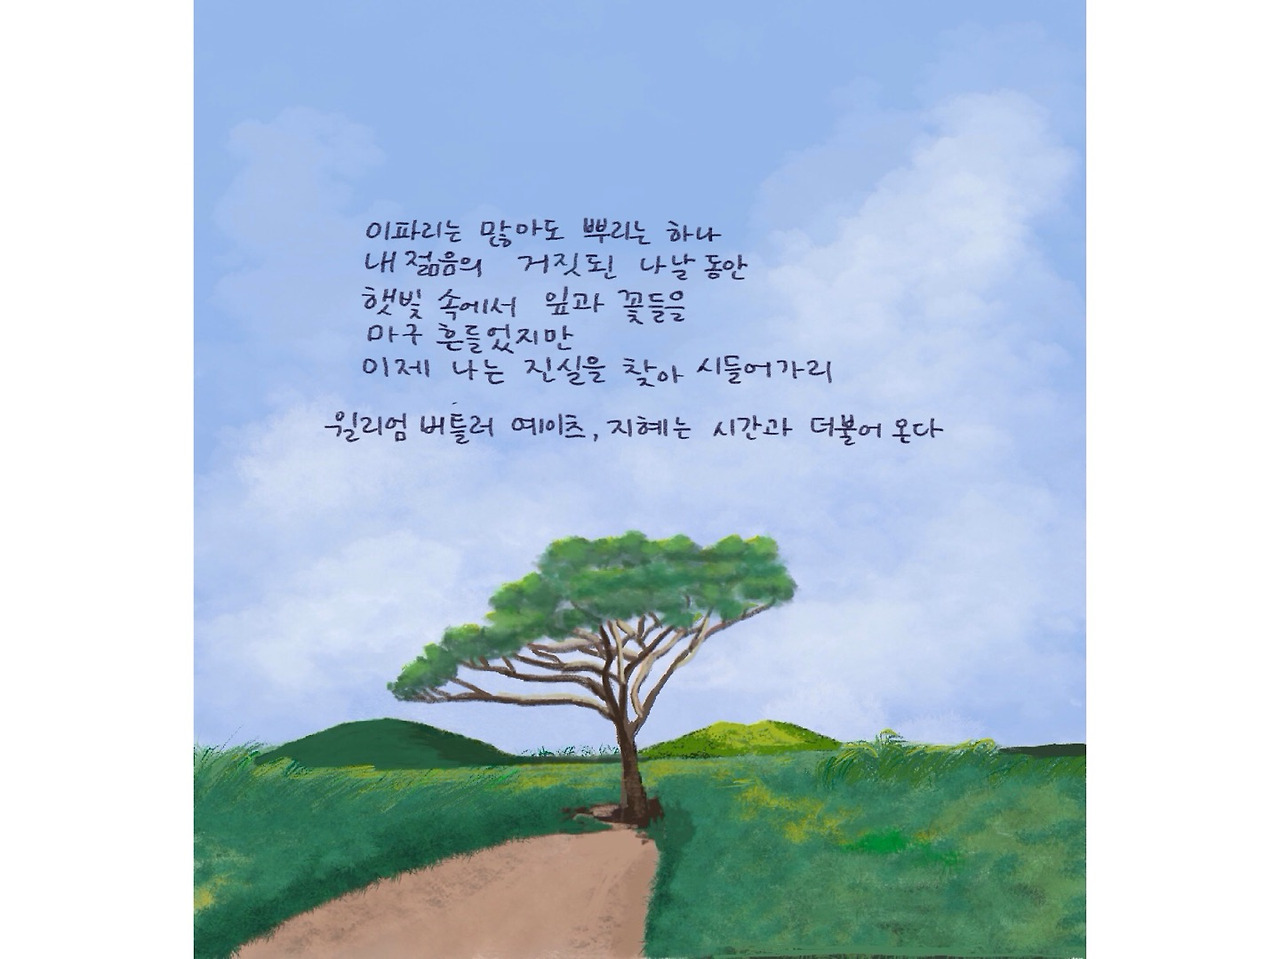 이파리는 많아도 뿌리는 하나
내 젊음의 거짓된 나날 동안
햇빛 속에서 잎과 꽃들을
마구 흔들었지만
이제 나는 진실을 찾아 시들어가리
윌리엄 버틀러 예이츠, 지혜는 시간과 더불어 온다